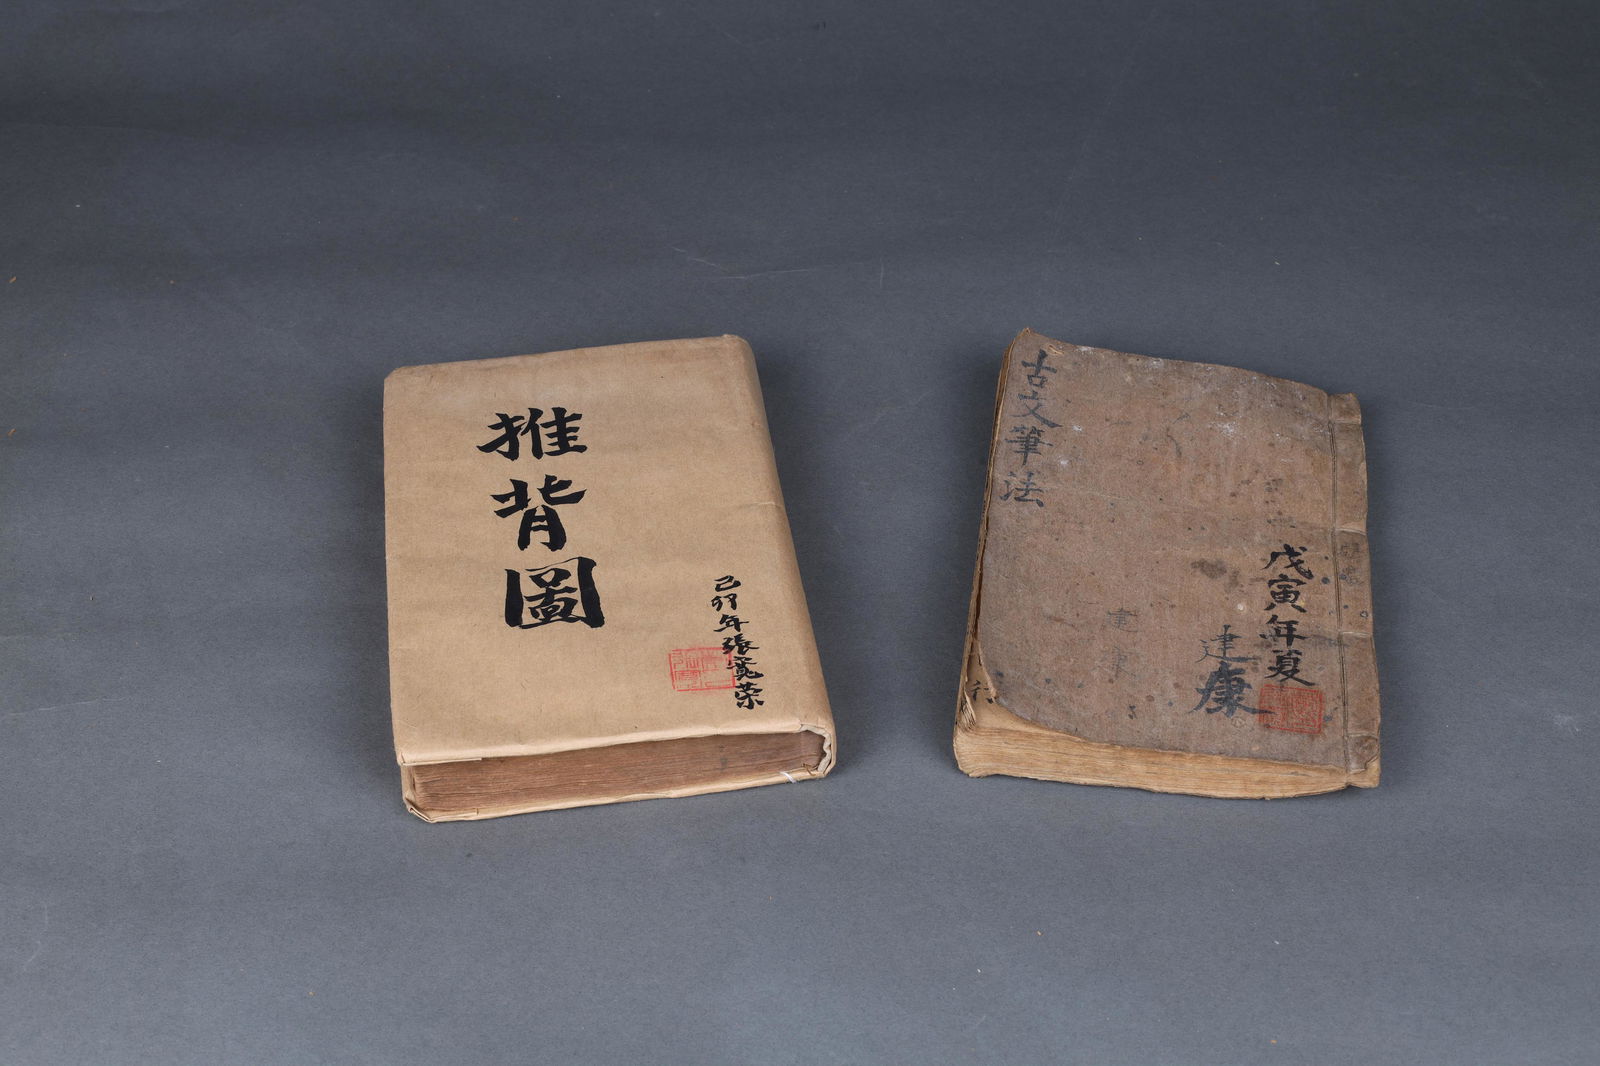 推背圖
己卯年張寬荣
古文筆法
戊寅年夏
建康